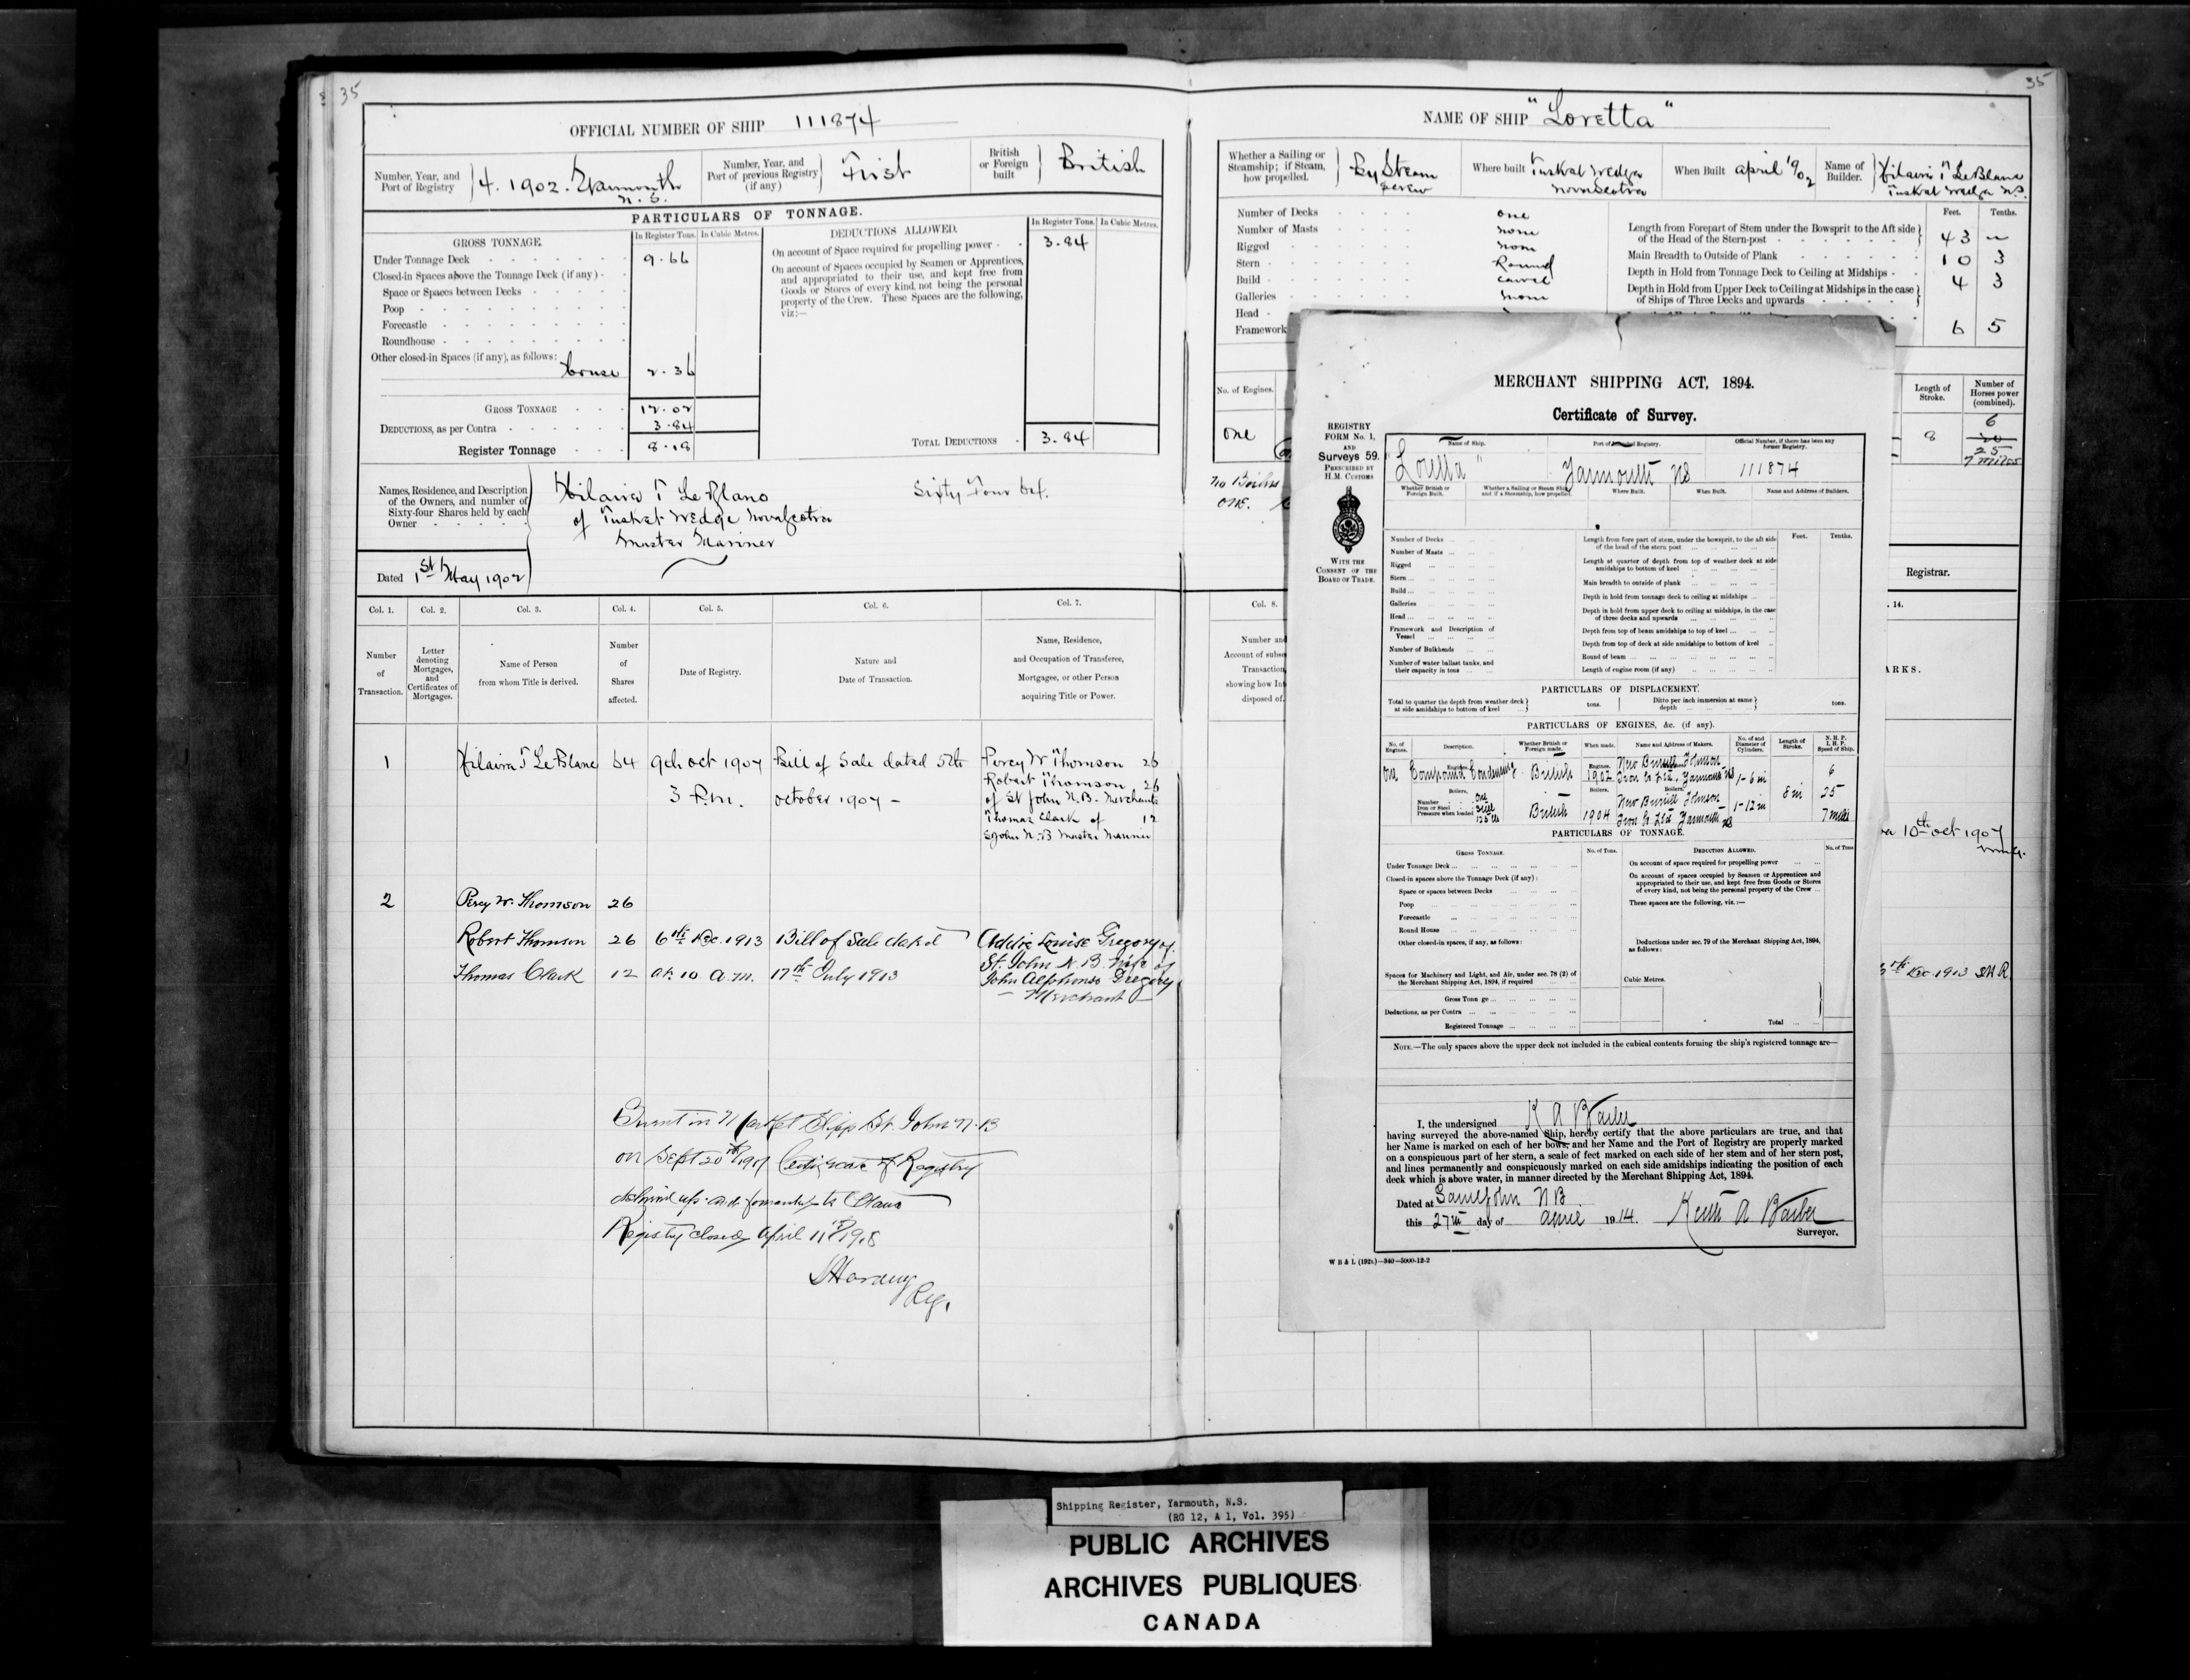 35
OFFICIAL NUMBER OF SHIP 111874
Number, Year, and Port of Registry
4. 1902. Yarmouth N.S.
Number, Year, and Port of previous Registry (if any)
First
British or Foreign built
British
PARTICULARS OF TONNAGE.
GROSS TONNAGE.
In Register Tons. In Cubic Metres.
Under Tonnage Deck 9.66
Closed-in Spaces above the Tonnage Deck (if any)
Space or Spaces between Decks
Poop
Forecastle
Roundhouse
Other closed-in Spaces (if any), as follows:
House 2.36
GROSS TONNAGE 12.02
DEDUCTIONS, as per Contra 3.84
Register Tonnage 8.18
DEDUCTIONS ALLOWED.
In Register Tons. In Cubic Metres.
On account of Space required for propelling power 3.84
On account of Spaces occupied by Seamen or Apprentices,
and appropriated to their use, and kept free from
Goods or Stores of every kind, not being the personal
property of the Crew. These Spaces are the following,
viz:—
TOTAL DEDUCTIONS 3.84
Names, Residence, and Description
of the Owners, and number of
Sixty-four Shares held by each
Owner
Hilaire T LeBlanc Sixty Four 64.
of Tusket Wedge Nova Scotia
Master Mariner
Dated 1st May 1902
Col. 1. Col. 2. Col. 3. Col. 4. Col. 5. Col. 6. Col. 7.
Number of Transaction.
Letter denoting Mortgages, and Certificates of Mortgages.
Name of Person from whom Title is derived.
Number of Shares affected.
Date of Registry.
Nature and Date of Transaction.
Name, Residence, and Occupation of Transferee, Mortgagee, or other Person acquiring Title or Power.
1 Hilaire T LeBlanc 64 9th Oct 1907 Bill of Sale dated 5th Percy W Thomson 26
3 P.m. October 1907 – Robert Thomson 26
of St John N.B. Merchants
Thomas Clark of 12
St John N.B Master Mariner
2 Percy W. Thomson 26
Robert Thomson 26 6th Dec. 1913 Bill of Sale dated Addie Louise Gregory of
Thomas Clark 12 at 10 a.m. 17th July 1913 St. John N.B. Wife of
John Alphonso Gregory
— Merchant —
Burnt in Market Slipp St. John N.B
on Sept 20th Certificate of Registry
delivered up and forwarded to Ottawa
Registry closed April 11th 1918
Reg.
35
NAME OF SHIP "Loretta"
Whether a Sailing or Steamship; if Steam, how propelled.
By Steam Screw
Where built Tusket Wedge Nova Scotia
When Built April 1902
Name of Builder. Hilaire T LeBlanc Tusket Wedge N.S.
Number of Decks one
Number of Masts none
Rigged none
Stern Round
Build Carvel
Galleries none
Head
Framework
Feet. Tenths.
Length from Forepart of Stem under the Bowsprit to the Aft side
of the Head of the Stern-post 43 –
Main Breadth to Outside of Plank 10 3
Depth in Hold from Tonnage Deck to Ceiling at Midships 4 3
Depth in Hold from Upper Deck to Ceiling at Midships in the case
of Ships of Three Decks and upwards
6 5
No. of Engines.
one
Length of Stroke.
8
Number of Horses power (combined).
6
25
7 miles
No Boilers
one.
Registrar.
Col. 8.
Number and
Account of subse
Transaction,
showing how Int
disposed of.
. 14.
ARKS.
10th Oct 1907
Dec. 1913
MERCHANT SHIPPING ACT, 1894.
Certificate of Survey.
REGISTRY
FORM No. 1,
AND
Surveys 59.
PRESCRIBED BY
H.M. CUSTOMS
WITH THE
CONSENT OF THE
BOARD OF TRADE.
Name of Ship. Port of Intended Registry. Official Number, if there has been any former Registry.
Loretta" Yarmouth NS 111874
Whether British or Foreign Built. Whether a Sailing or Steam Ship and if a Steamship, how propelled. Where Built. When Built. Name and Address of Builders.
Number of Decks
Number of Masts
Rigged
Stern
Build
Galleries
Head
Framework and Description of Vessel
Number of Bulkheads
Number of water ballast tanks, and their capacity in tons
Feet. Tenths.
Length from fore part of stem, under the bowsprit, to the aft side of the head of the stern post
Length at quarter of depth from top of weather deck at side amidships to bottom of keel
Main breadth to outside of plank
Depth in hold from tonnage deck to ceiling at midships
Depth in hold from upper deck to ceiling at midships, in the case of three decks and upwards
Depth from top of beam amidships to top of keel
Depth from top of deck at side amidships to bottom of keel
Round of beam
Length of engine room (if any)
PARTICULARS OF DISPLACEMENT.
Total to quarter the depth from weather deck at side amidships to bottom of keel tons. Ditto per inch immersion at same depth tons.
PARTICULARS OF ENGINES, &c. (if any).
No. of Engines. Description. Whether British or Foreign made. When made. Name and Address of Makers. No. of and Diameter of Cylinders. Length of Stroke. N. H. P. I. H. P. Speed of Ship.
One Engines. Compound Condensing British Engines. 1902 New Burrill Johnson Iron Co Ltd, Yarmouth NS 1–6 in 6
Boilers.
Number One
Iron or Steel Steel
Pressure when loaded 125 lbs
British 1904 New Burrill Johnson Iron Co Ltd Yarmouth NS 1–12 in 8 in 25
7 miles
PARTICULARS OF TONNAGE.
GROSS TONNAGE. No. of Tons. DEDUCTION ALLOWED. No. of Tons
Under Tonnage Deck
Closed-in spaces above the Tonnage Deck (if any):
Space or spaces between Decks
Poop
Forecastle
Round House
Other closed-in spaces, if any, as follows:
Spaces for Machinery and Light, and Air, under sec. 78 (2) of the Merchant Shipping Act, 1894, if required
Gross Tonnage
Deductions, as per Contra
Registered Tonnage
On account of space required for propelling power
On account of spaces occupied by Seamen or Apprentices and appropriated to their use, and kept free from Goods or Stores of every kind, not being the personal property of the Crew
These spaces are the following, viz.:—
Deductions under sec. 79 of the Merchant Shipping Act, 1894, as follows:
Cubic Metres.
Total
NOTE.—The only spaces above the upper deck not included in the cubical contents forming the ship's registered tonnage are—
I, the undersigned K A Barber
having surveyed the above-named Ship, hereby certify that the above particulars are true, and that
her Name is marked on each of her bows, and her Name and the Port of Registry are properly marked
on a conspicuous part of her stern, a scale of feet marked on each side of her stem and of her stern post,
and lines permanently and conspicuously marked on each side amidships indicating the position of each
deck which is above water, in manner directed by the Merchant Shipping Act, 1894.
Dated at Saint John NB
this 27th day of 1914. Keith A Barber
Surveyor.
Shipping Register, Yarmouth, N.S.
(RG 12, A 1, Vol. 395)
PUBLIC ARCHIVES
ARCHIVES PUBLIQUES
CANADA